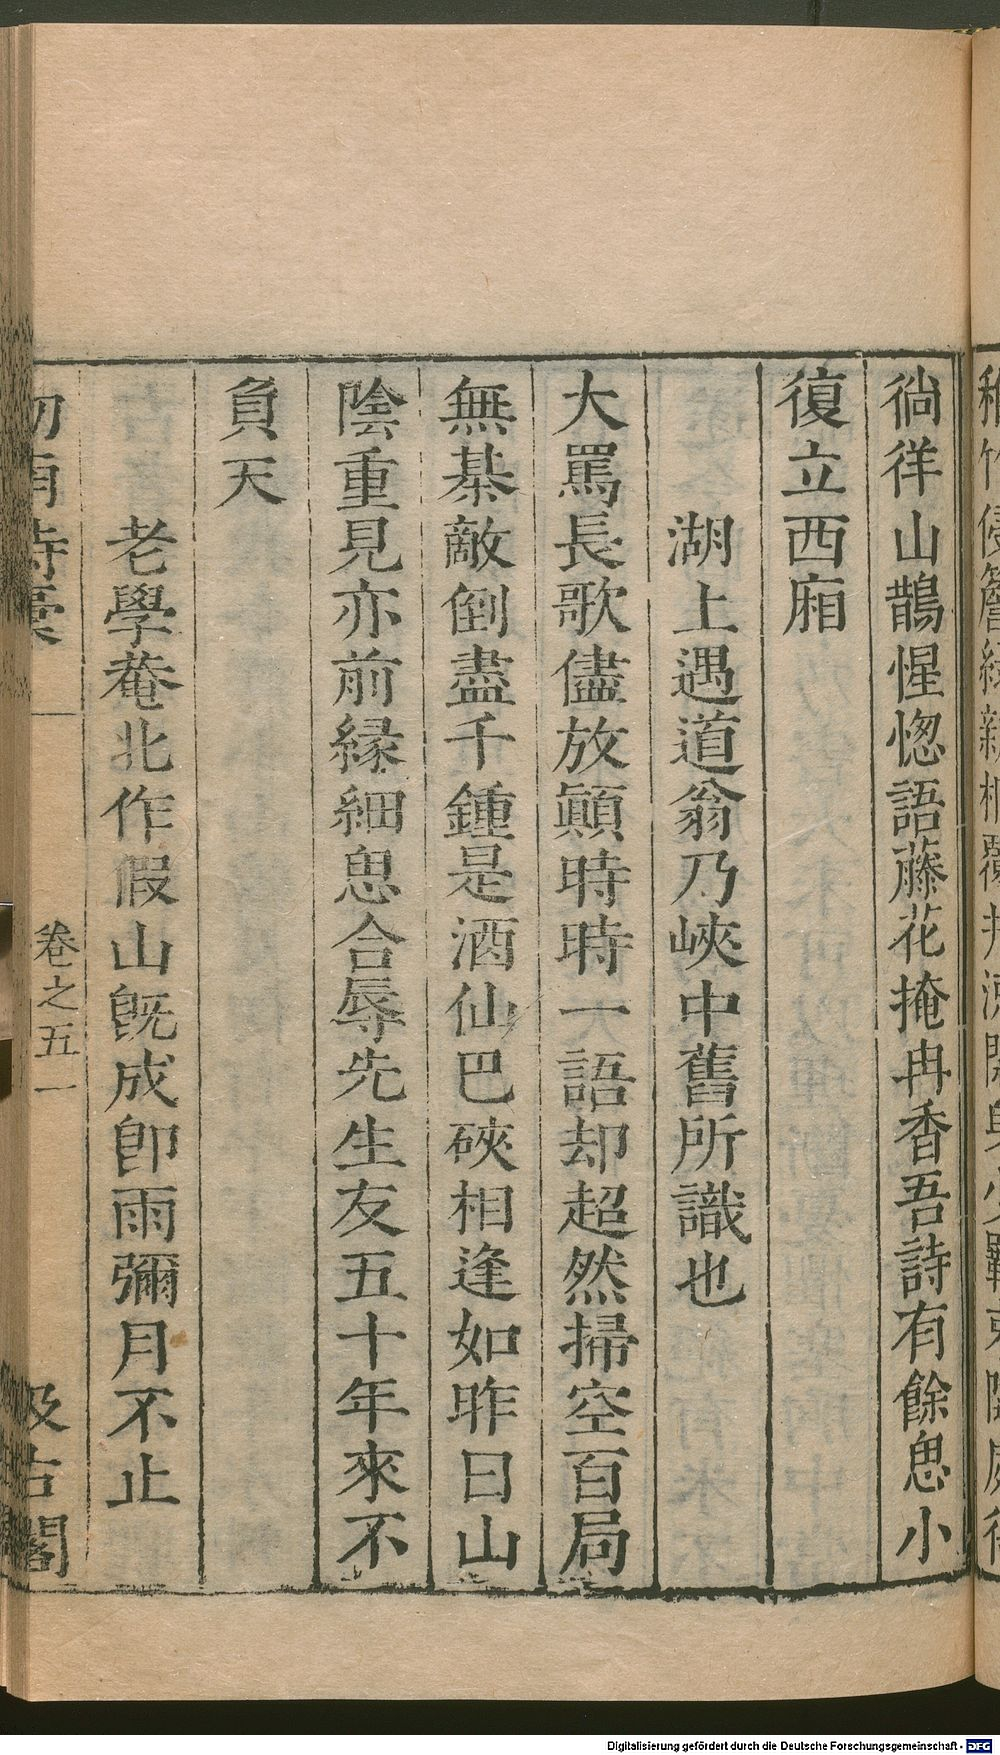 徜徉山鵲惺惚語藤花掩冉香吾詩有餘思小
復立西廂
湖上遇道翁乃峽中舊所識也
大罵長歌儘放顛時時一語却超然掃空百局
無棊敵倒盡千鍾是酒仙巴硤相逢如昨日山
陰重見亦前縁細思合辱先生友五十年來不
負天
老學菴北作假山旣成卽雨彌月不止
卷之五一
汲古閣
Digitalisierung gefördert durch die Deutsche Forschungsgemeinschaft - DFG